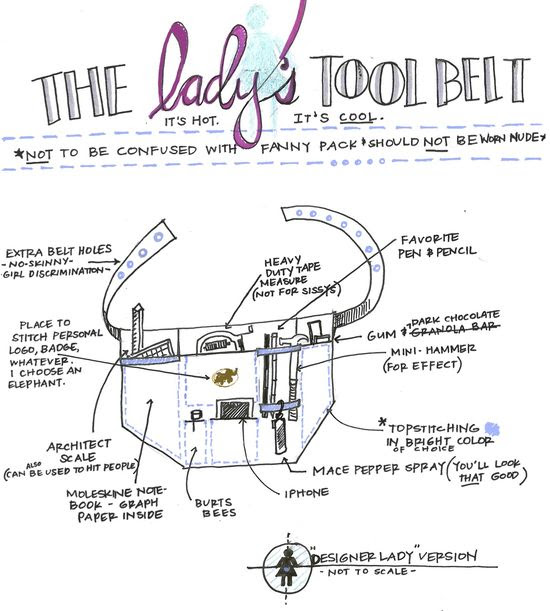 THE lady's TOOL BELT
IT'S HOT. IT'S COOL.
*NOT TO BE CONFUSED WITH FANNY PACK & SHOULD NOT BE WORN NUDE*
EXTRA BELT HOLES
-NO-SKINNY-
GIRL DISCRIMINATION-
HEAVY
DUTY TAPE
MEASURE
(NOT FOR SISSYS)
FAVORITE
PEN & PENCIL
PLACE TO
STITCH PERSONAL
LOGO, BADGE,
WHATEVER.
I CHOOSE AN
ELEPHANT.
DARK CHOCOLATE
GUM & GRANOLA BAR
MINI-HAMMER
(FOR EFFECT)
*TOPSTITCHING
IN BRIGHT COLOR
OF CHOICE
ARCHITECT
SCALE
ALSO
(CAN BE USED TO HIT PEOPLE)
MACE PEPPER SPRAY (YOU'LL LOOK
THAT GOOD)
MOLESKINE NOTE-
BOOK - GRAPH
PAPER INSIDE
BURTS
BEES
IPHONE
"DESIGNER LADY" VERSION
- NOT TO SCALE -